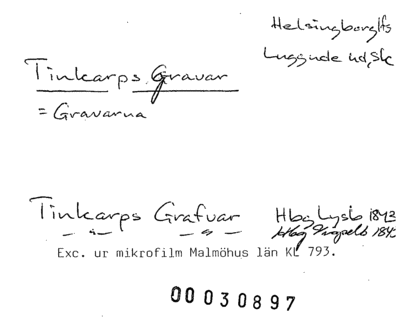 Helsingborg lfs
Luggude hd, Sk
Tinkarps Gravar
= Gravarna
Tinkarps Grafvar Hbg Lysb 1843
Hbg 184
Exc. ur mikrofilm Malmöhus län KL 793.
00030897